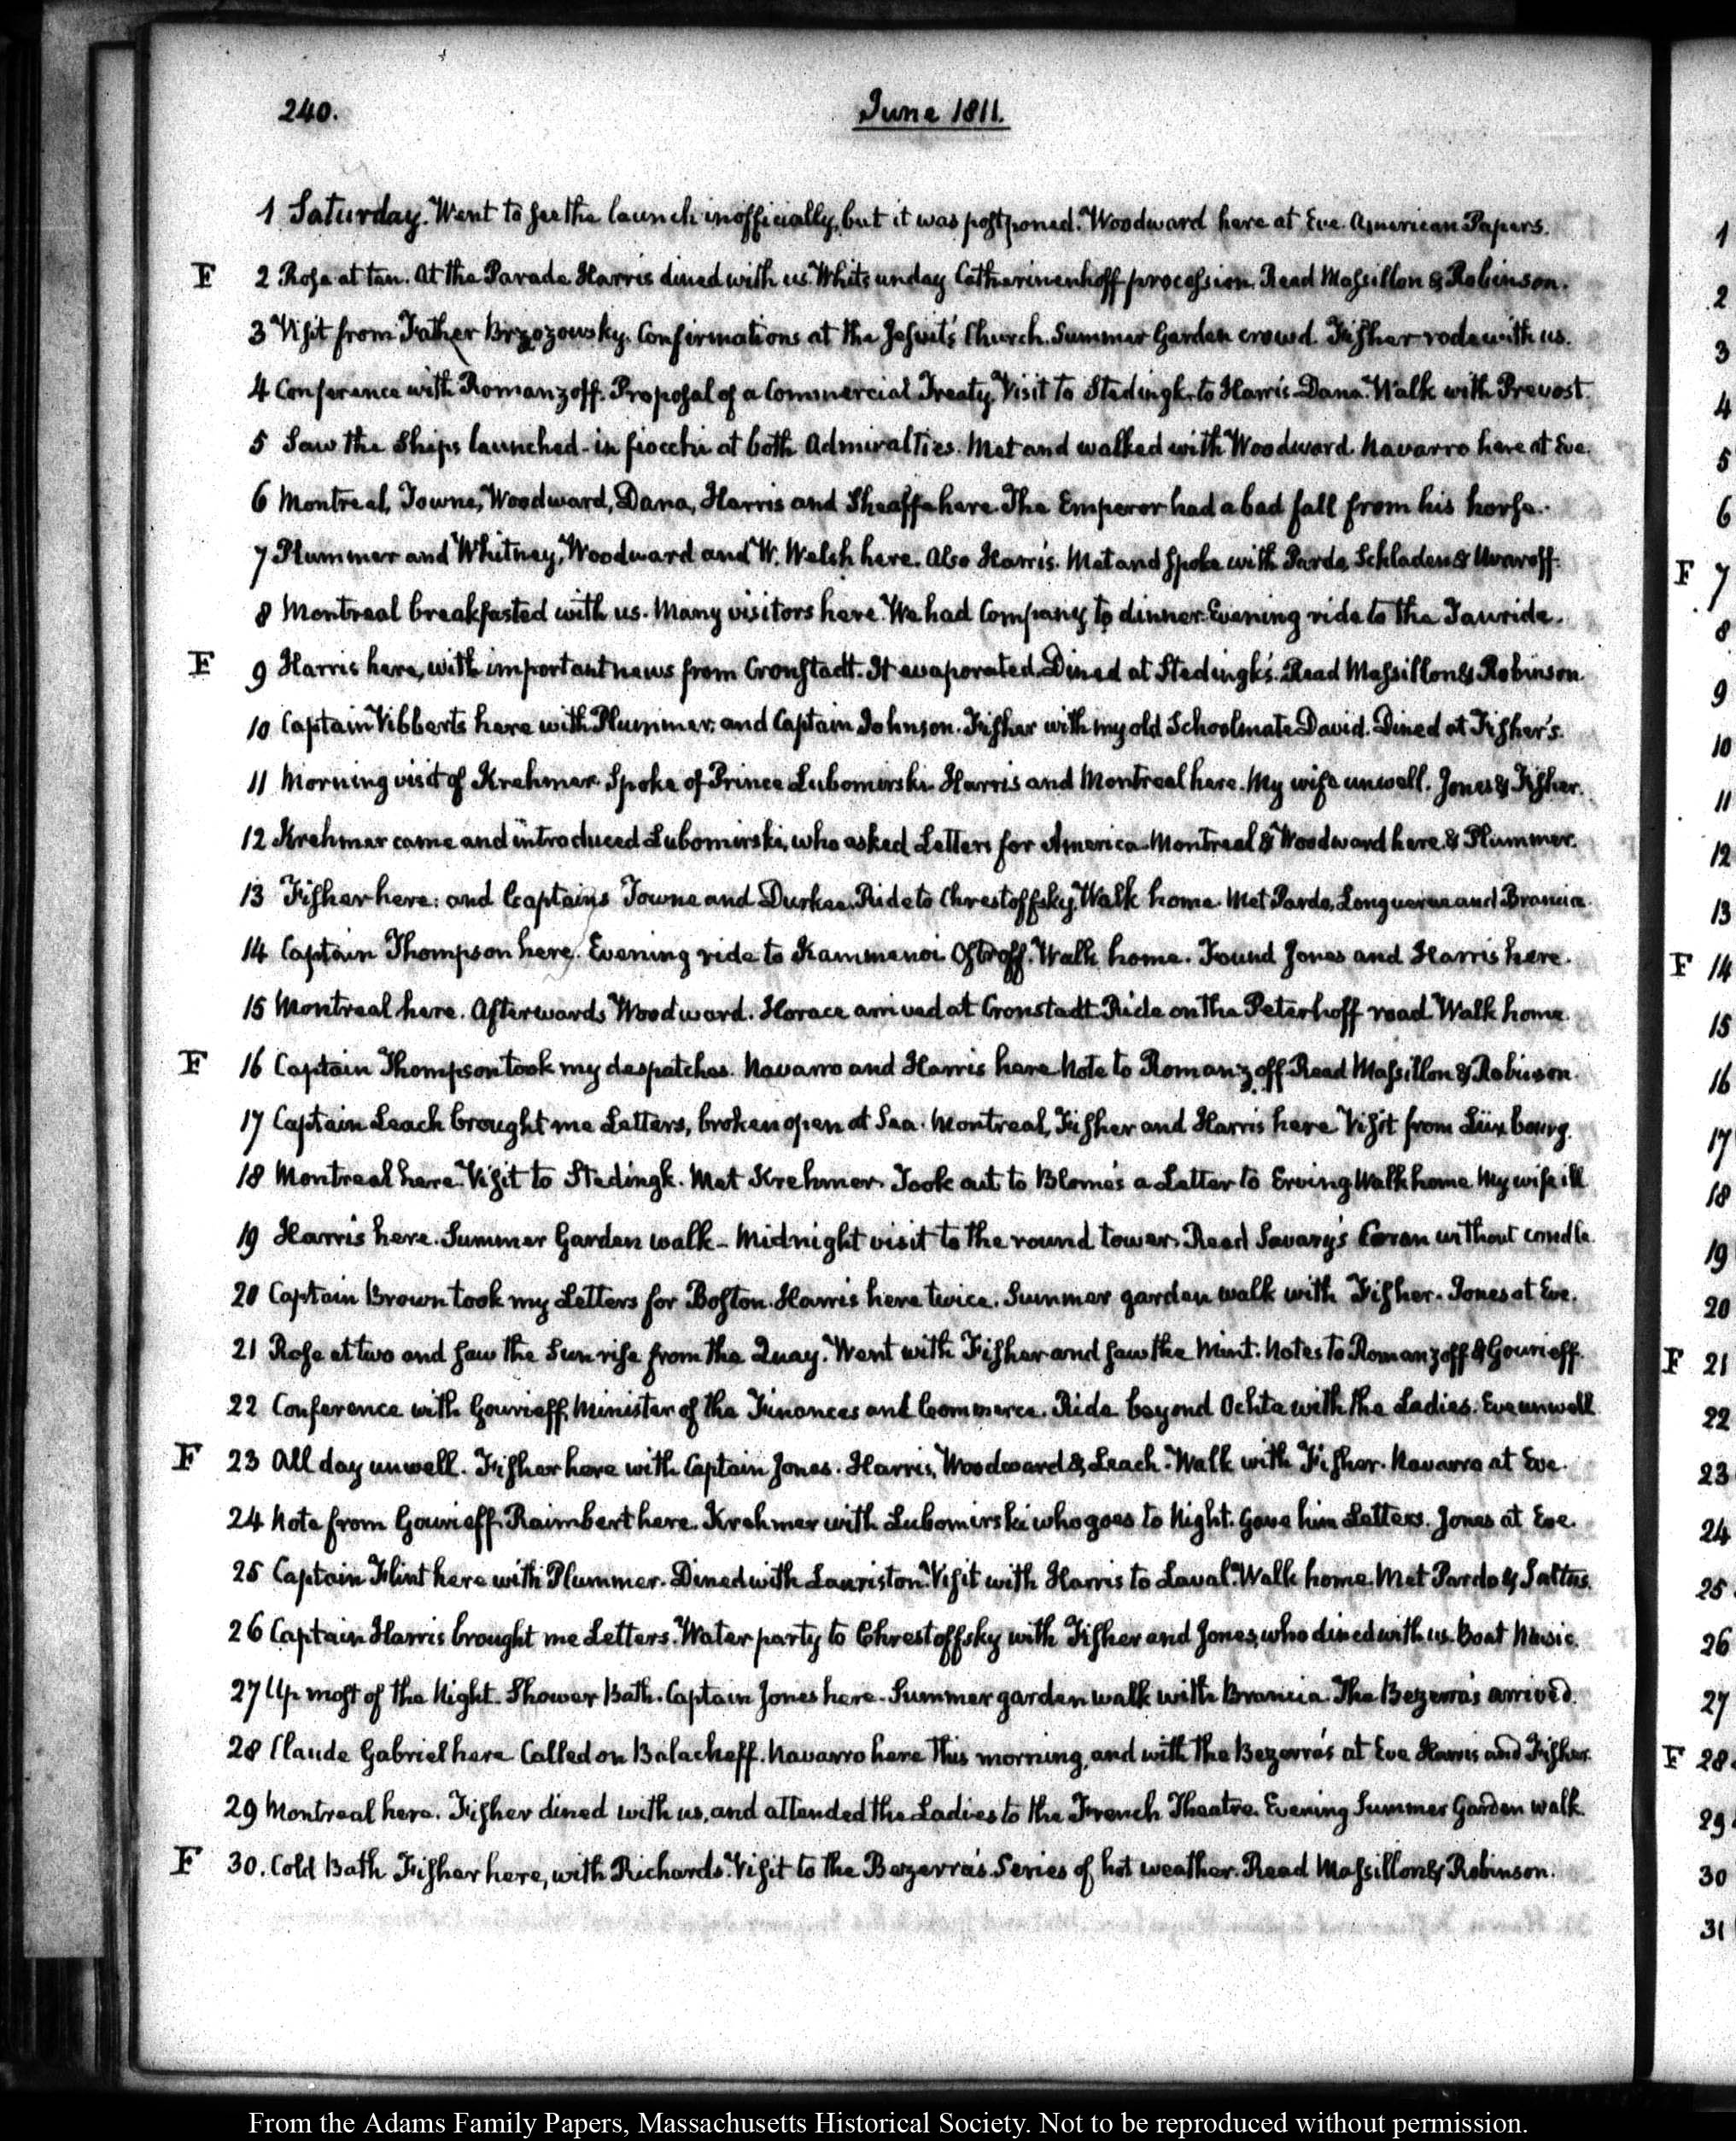 240.
June 1811.
1 Saturday. Went to see the launch inofficially, but it was postponed. Woodward here at Eve. American Papers.
F 2 Rose at ten. At the Parade. Harris dined with us. Whitsunday Catherinenhoff procession. Read Massillon & Robinson.
3 Visit from Father Brzozowsky. Confirmations at the Jesuit's Church. Summer Garden crowd. Fisher rode with us.
4 Conference with Romanzoff. Proposal of a Commercial Treaty. Visit to Stedingk. to Harris. Dana. Walk with Prevost.
5 Saw the Ships launched - in fiocchi at both Admiralties. Met and walked with Woodward. Navarro here at Eve.
6 Montreal, Towne, Woodward, Dana, Harris and Sheaffe here. The Emperor had a bad fall from his horse.
7 Plummer and Whitney, Woodward and W. Welsh here. Also Harris. Met and spoke with Pardo, Schladen & Uvaroff.
8 Montreal breakfasted with us. Many visitors here. We had Company to dinner. Evening ride to the Tauride.
F 9 Harris here, with important news from Cronstadt. It evaporated. Dined at Stedingk's. Read Massillon & Robinson.
10 Captain Vibberts here with Plummer, and Captain Johnson. Fisher with my old Schoolmate David. Dined at Fisher's.
11 Morning visit of Krehmer. Spoke of Prince Lubomirski. Harris and Montreal here. My wife unwell. Jones & Fisher.
12 Krehmer came and introduced Lubomirski, who asked Letters for America. Montreal & Woodward here. & Plummer.
13 Fisher here: and Captains Towne and Durkee. Ride to Chrestoffsky. Walk home. Met Pardo, Longuerue and Brancia.
14 Captain Thompson here. Evening ride to Kammenoi Ostroff. Walk home. Found Jones and Harris here.
15 Montreal here. Afterwards Woodward. Horace arrived at Cronstadt. Ride on the Peterhoff road. Walk home.
F 16 Captain Thompson took my despatches. Navarro and Harris here. Note to Romanzoff. Read Massillon & Robinson.
17 Captain Leach brought me Letters, broken open at Sea. Montreal, Fisher and Harris here. Visit from Lüxbourg.
18 Montreal here. Visit to Stedingk. Met Krehmer. Took out to Blome's a Letter to Erving. Walk home. My wife ill
19 Harris here. Summer Garden walk - Midnight visit to the round tower. Read Savary's Coran without candle.
20 Captain Brown took my Letters for Boston. Harris here twice. Summer garden walk with Fisher. Jones at Eve.
21 Rose at two and saw the Sun rise from the Quay. Went with Fisher and saw the Mint. Notes to Romanzoff & Gourieff.
22 Conference with Gourieff, Minister of the Finances and Commerce. Ride beyond Ochta with the Ladies. Eve unwell
F 23 All day unwell. Fisher here with Captain Jones. Harris, Woodward & Leach. Walk with Fisher. Navarro at Eve.
24 Note from Gourieff. Raimbert here. Krehmer with Lubomirski who goes to Night. Gave him Letters. Jones at Eve.
25 Captain Flint here with Plummer. Dined with Lauriston. Visit with Harris to Laval. Walk home. Met Pardo &
26 Captain Harris brought me Letters. Water party to Chrestoffsky with Fisher and Jones, who dined with us. Boat Music.
27 Up most of the Night. Shower Bath. Captain Jones here. Summer garden walk with Brancia. The Bezerra's arrived.
28 Claude Gabriel here. Called on Balacheff. Navarro here this morning, and with the Bezerra's at Eve. Harris and Fisher.
29 Montreal here. Fisher dined with us, and attended the Ladies to the French Theatre. Evening Summer Garden walk.
F 30. Cold Bath. Fisher here, with Richards. Visit to the Bezerra's. Series of hot weather. Read Massillon & Robinson.
1
2
3
4
5
6
F 7
8
9
10
11
12
13
F 14
15
16
17
18
19
20
F 21
22
23
24
25
26
27
F 28
29
30
31
From the Adams Family Papers, Massachusetts Historical Society. Not to be reproduced without permission.